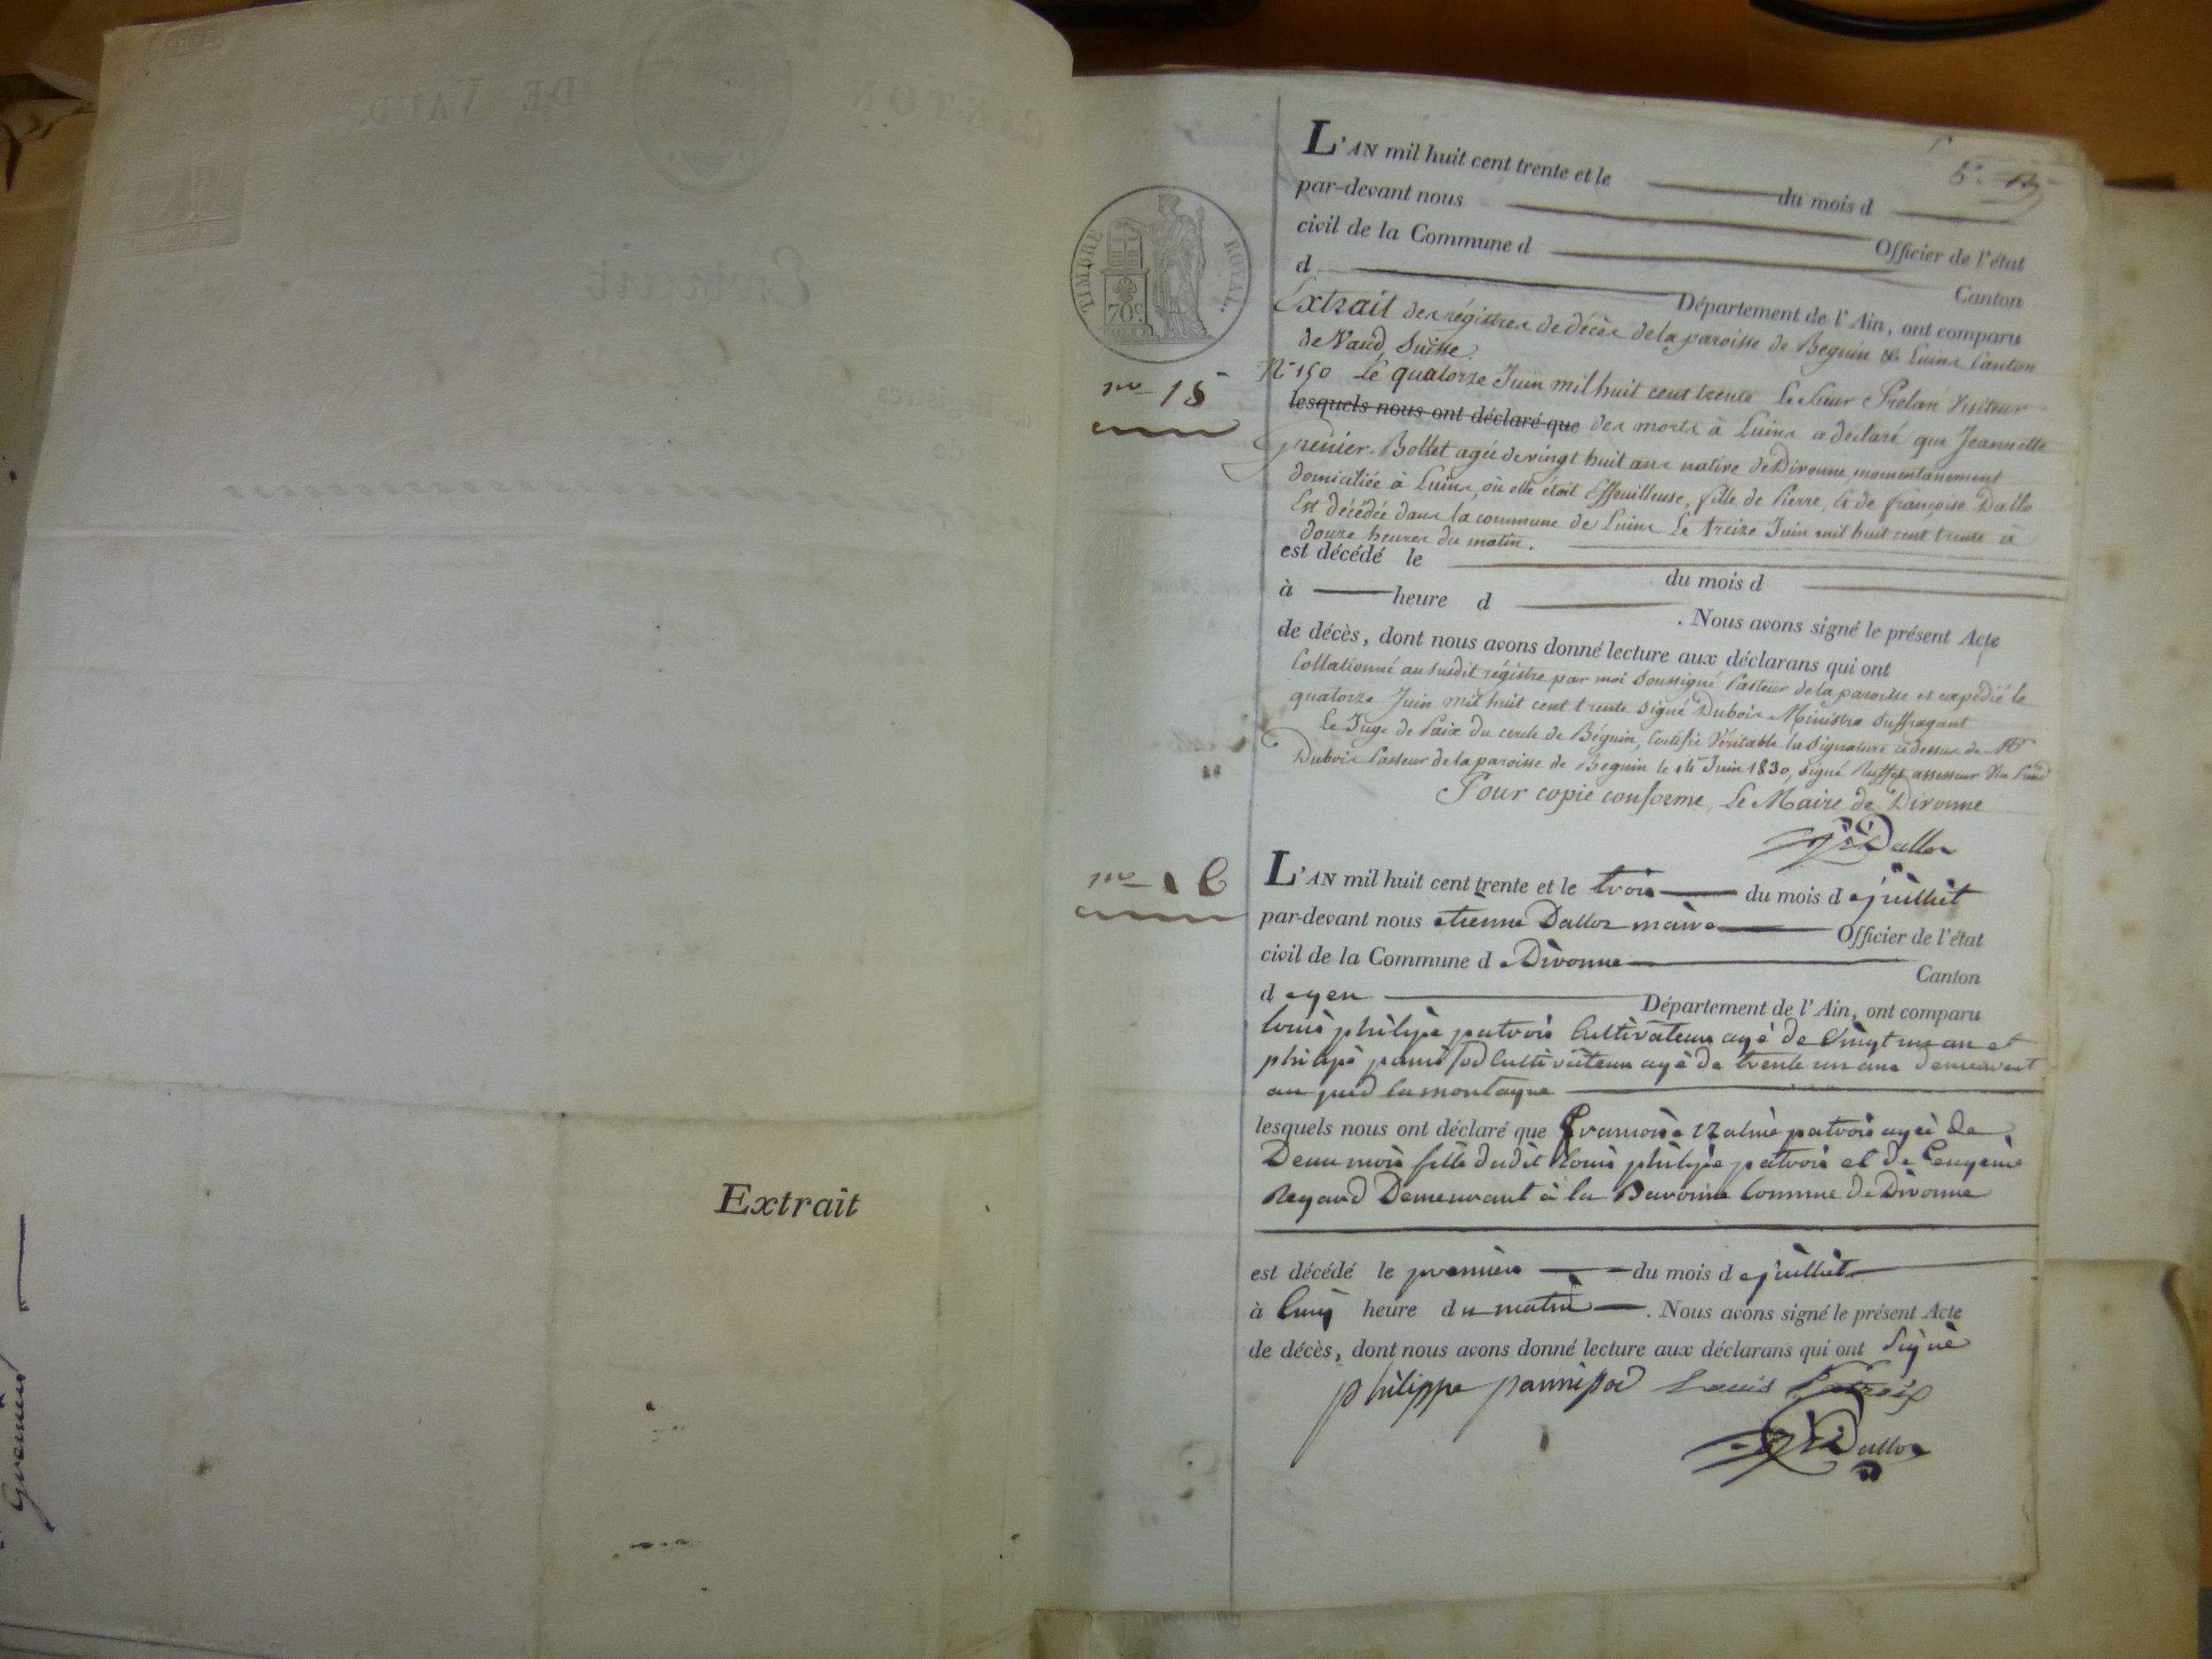 CANTON DE VAUD.
Extrait
Extrait
Grenier
5e
TIMBRE ROYAL.
70c
L'AN mil huit cent trente et le du mois d
par-devant nous Officier de l'état
civil de la Commune d Canton
d Département de l'Ain, ont comparu
Extrait des régistres de décès de la paroisse de Beguin & Luins Canton
de Vaud, Suisse.
no 15
No 150 Le quatorze Juin mil huit cent trente Le Sieur Prelan Visiteur
lesquels nous ont déclaré que des morts à Luins a déclaré que Jeannette
Grenier-Bollet agée de vingt huit ans native de Divonne, momentanement
domiciliée à Luins, où elle était Effeuilleuse, fille de Pierre, & de françoise Dallo
Est décédée dans la commune de Luins Le treize Juin mil huit cent trente à
douze heures du matin.
est décédé le du mois d
à heure d . Nous avons signé le présent Acte
de décès, dont nous avons donné lecture aux déclarans qui ont
Collationné au susdit régistre par moi Soussigné Pasteur de la paroisse et expédié le
quatorze Juin mil huit cent trente Signé Dubois Ministre Suffragant
Le Juge de Paix du cercle de Béguin, Certifie Véritable la Signature ci dessus de Mr
Dubois Pasteur de la paroisse de Beguin le 14 Juin 1830, Signé assesseur
Pour copie conforme, Le Maire de Divonne
Dalloz
no 16
L'AN mil huit cent trente et le trois du mois de juillet
par-devant nous etienne Dalloz maire Officier de l'état
civil de la Commune de Divonne Canton
de gex Département de l'Ain, ont comparu
louis philipe patrois Cultivateur agé de vingt un an et
philipe panisod Cultivateur agé de trente un ans demeurant
au pied la montagne
lesquels nous ont déclaré que patrois agée de
Deux mois fille dudit louis philipe patrois et de
Regard Demeurant à la Commune de Divonne
est décédé le premier du mois de juillet
à Cinq heure du matin . Nous avons signé le présent Acte
de décès, dont nous avons donné lecture aux déclarans qui ont Signé
philippe pannisod Louis Patroix
Dalloz